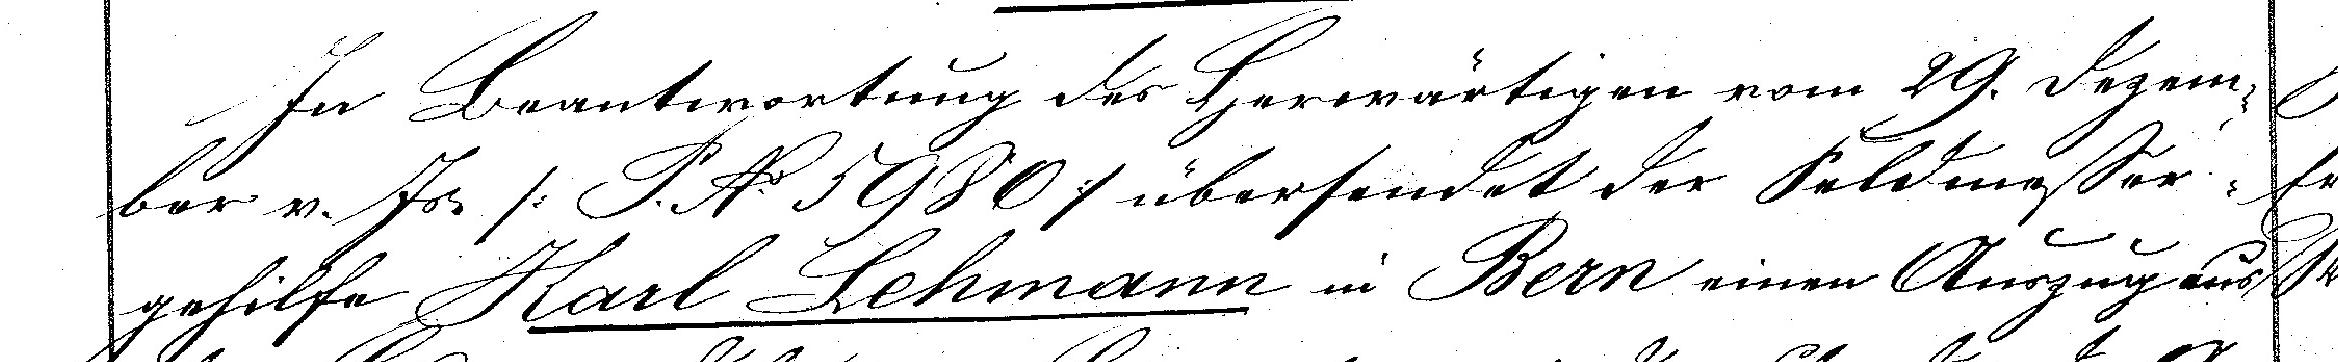 In Beantwortung des Herwärtigen vom 29. Dezem¬
ber v. Js. /: P. No 5980 :/ übersendet der Feldmesser¬
gehilfe Karl Lehmann in Bern einen Auszug aus